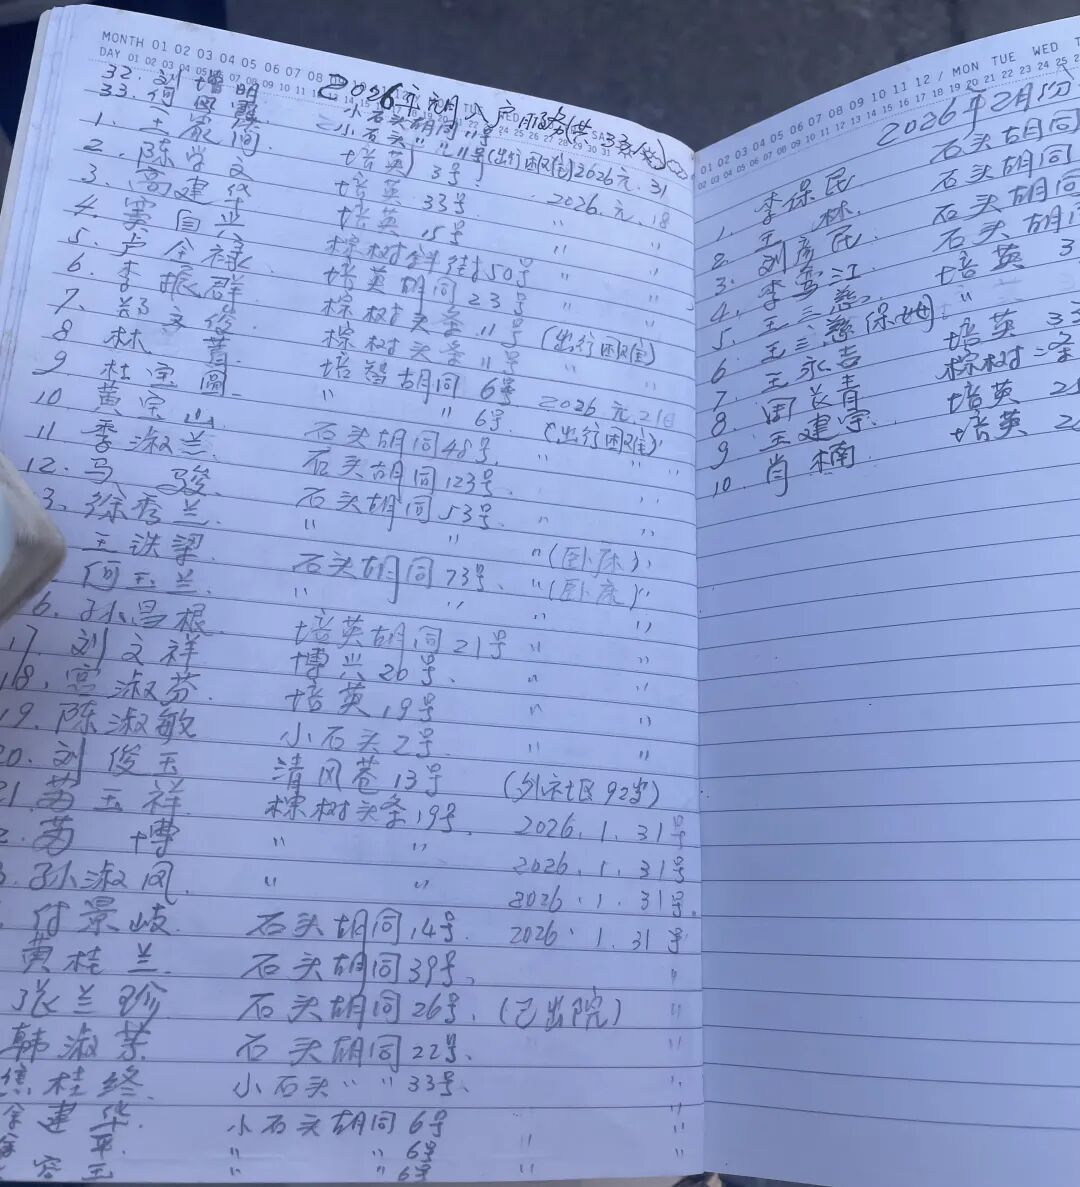 MONTH 01 02 03 04 05 06 07 08
DAY 01 02 03 04 05
2026年元月入户服务共33
32. 刘增明 小石头胡同11号
33. 何凤霞 小石头〃〃11号
1. 王家简 培英3号 (出行困难) 2026元.31
2. 陈学文 培英33号 2026.元.18
3. 高建华 培英15号 〃 〃
4. 窦自兴 棕树斜街50号 〃 〃
5. 卢全禄 培英胡同23号 〃 〃
6. 李振群 棕树头条11号 (出行困难)
7. 郑文俊 棕树头条11号 〃 〃
8 林 菁 培智胡同6号 2026元21日
9 杜宝圖 〃 〃 6号 (出行困难)
10 黄宝山 石头胡同48号 〃 〃
11 季淑兰 石头胡同123号 〃 〃
12. 马骏 石头胡同53号 〃 〃
3. 徐秀兰 〃 〃 〃(卧床)
王洪梁 石头胡同73号 〃(卧床)〃
何玉兰 〃 〃 〃 〃
6. 孙昌根 培英胡同21号 〃 〃
17. 刘文祥 博兴26号 〃 〃
18. 宫淑芬 培英19号 〃 〃
19. 陈淑敏 小石头2号 〃 〃
20. 刘俊玉 清风巷13号 (外社区92岁)
21. 苗玉祥 棕树头条19号 2026.1.31号
2. 苗博 〃 〃 2026.1.31号
3. 孙淑凤 〃 〃 2026.1.31号
付景岐 石头胡同14号 2026.1.31号
黄桂兰 石头胡同39号 〃
张兰珍 石头胡同26号 (已出院) 〃
韩淑荣 石头胡同22号 〃
焦桂终 小石头〃〃33号 〃
建华 小石头胡同6号 〃
平 〃 〃6号 〃 〃
容玉 〃 〃6号 〃 〃
01 02 03 04 05 06 07 08 09 10 11 12 / MON TUE WED T
2026年2月份
石头胡同
1. 李保民 石头胡同
2. 王林 石头胡同
3. 刘彦民 石头胡同
4. 李雪江 培英3
5. 王三慈 〃
6 王三慈保姆 培英33
7. 王永吉 棕树二条
8. 周长青 培英2
9 王建宇 培英2
10. 肖楠